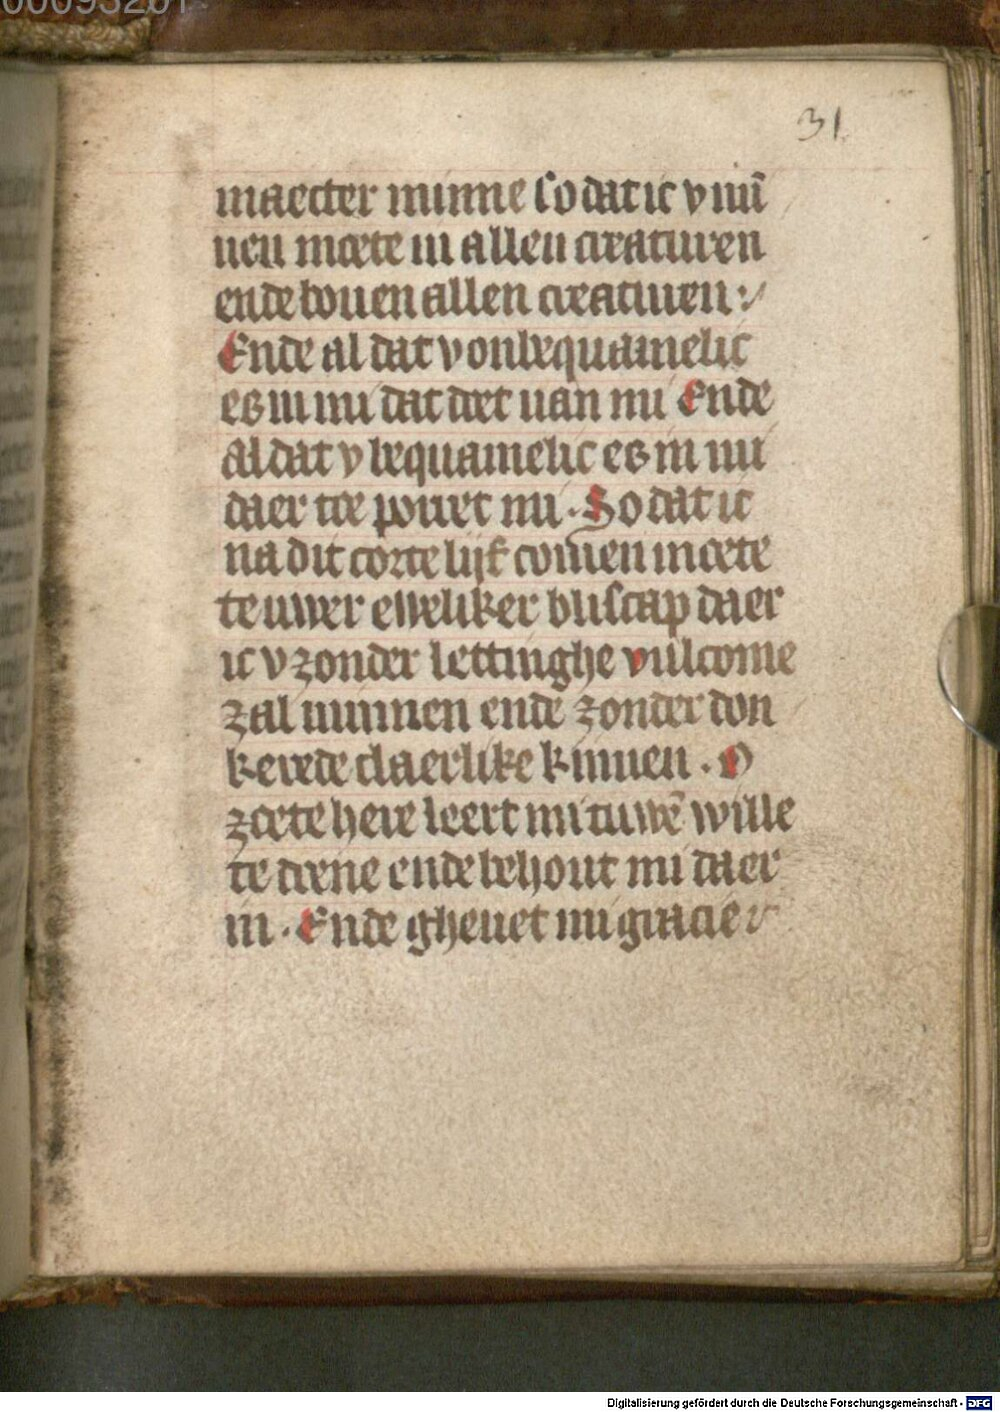 00093261
31
maecter minne so dat ic v min̄
nen moete in allen creaturen
ende bouen allen creaturen :/
Ende al dat v onbequamelic
es in mi dat doet uan mi Ende
al dat v bequamelic es in mi
daer toe porret mi . So dat ic
na dit corte lijf comen moete
te uwer eweliker buscap daer
ic v zonder lettinghe vulcome
zal minnen ende zonder don
kerede claerlike kinnen . O
zoete here leert mi tuwē wille
te doene ende behout mi daer
in . Ende gheuet mi gracie
Digitalisierung gefördert durch die Deutsche Forschungsgemeinschaft - DFG